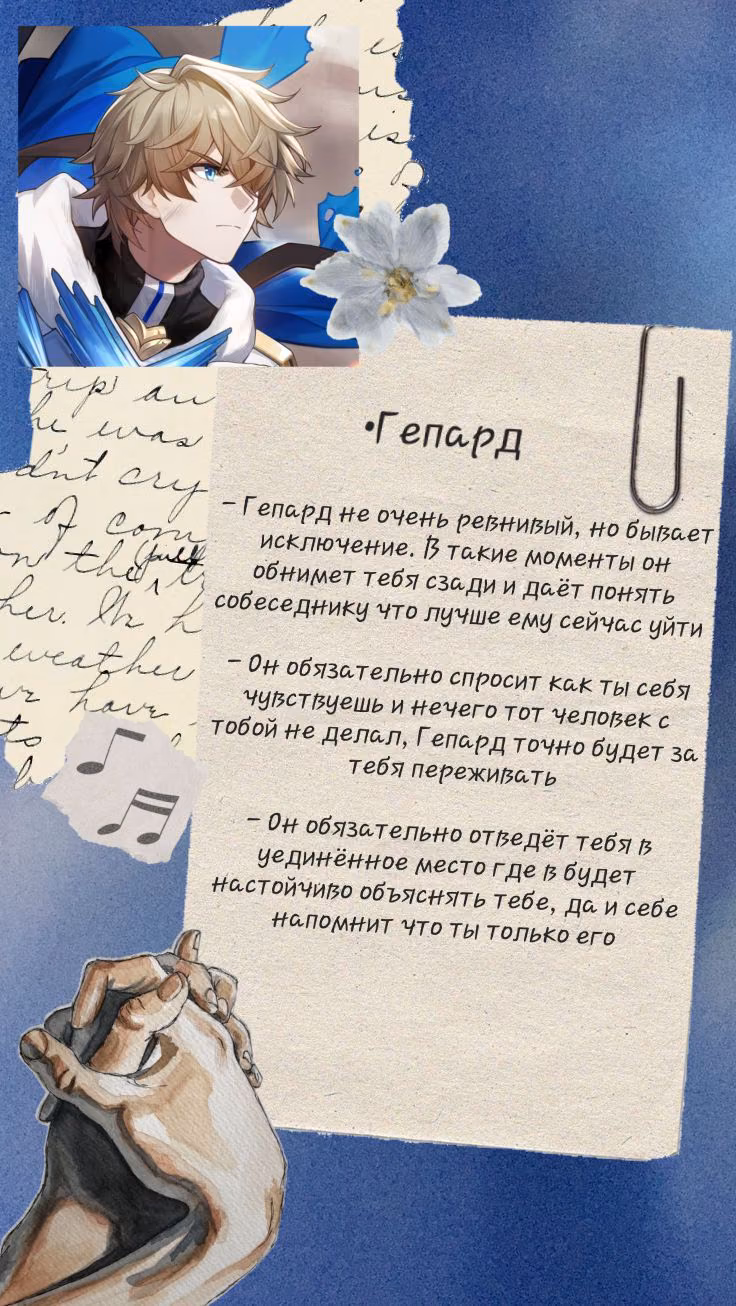 es
is
•Гепард
rip au
he was
didn't cry
– Гепард не очень ревнивый, но бывает
исключение. В такие моменты он
обнимет тебя сзади и даёт понять
собеседнику что лучше ему сейчас уйти
– Он обязательно спросит как ты себя
чувствуешь и нечего тот человек с
тобой не делал, Гепард точно будет за
тебя переживать
– Он обязательно отведёт тебя в
уединённое место где в будет
настойчиво объяснять тебе, да и себе
напомнит что ты только его
of com
on the
her. It h
weather
have
to